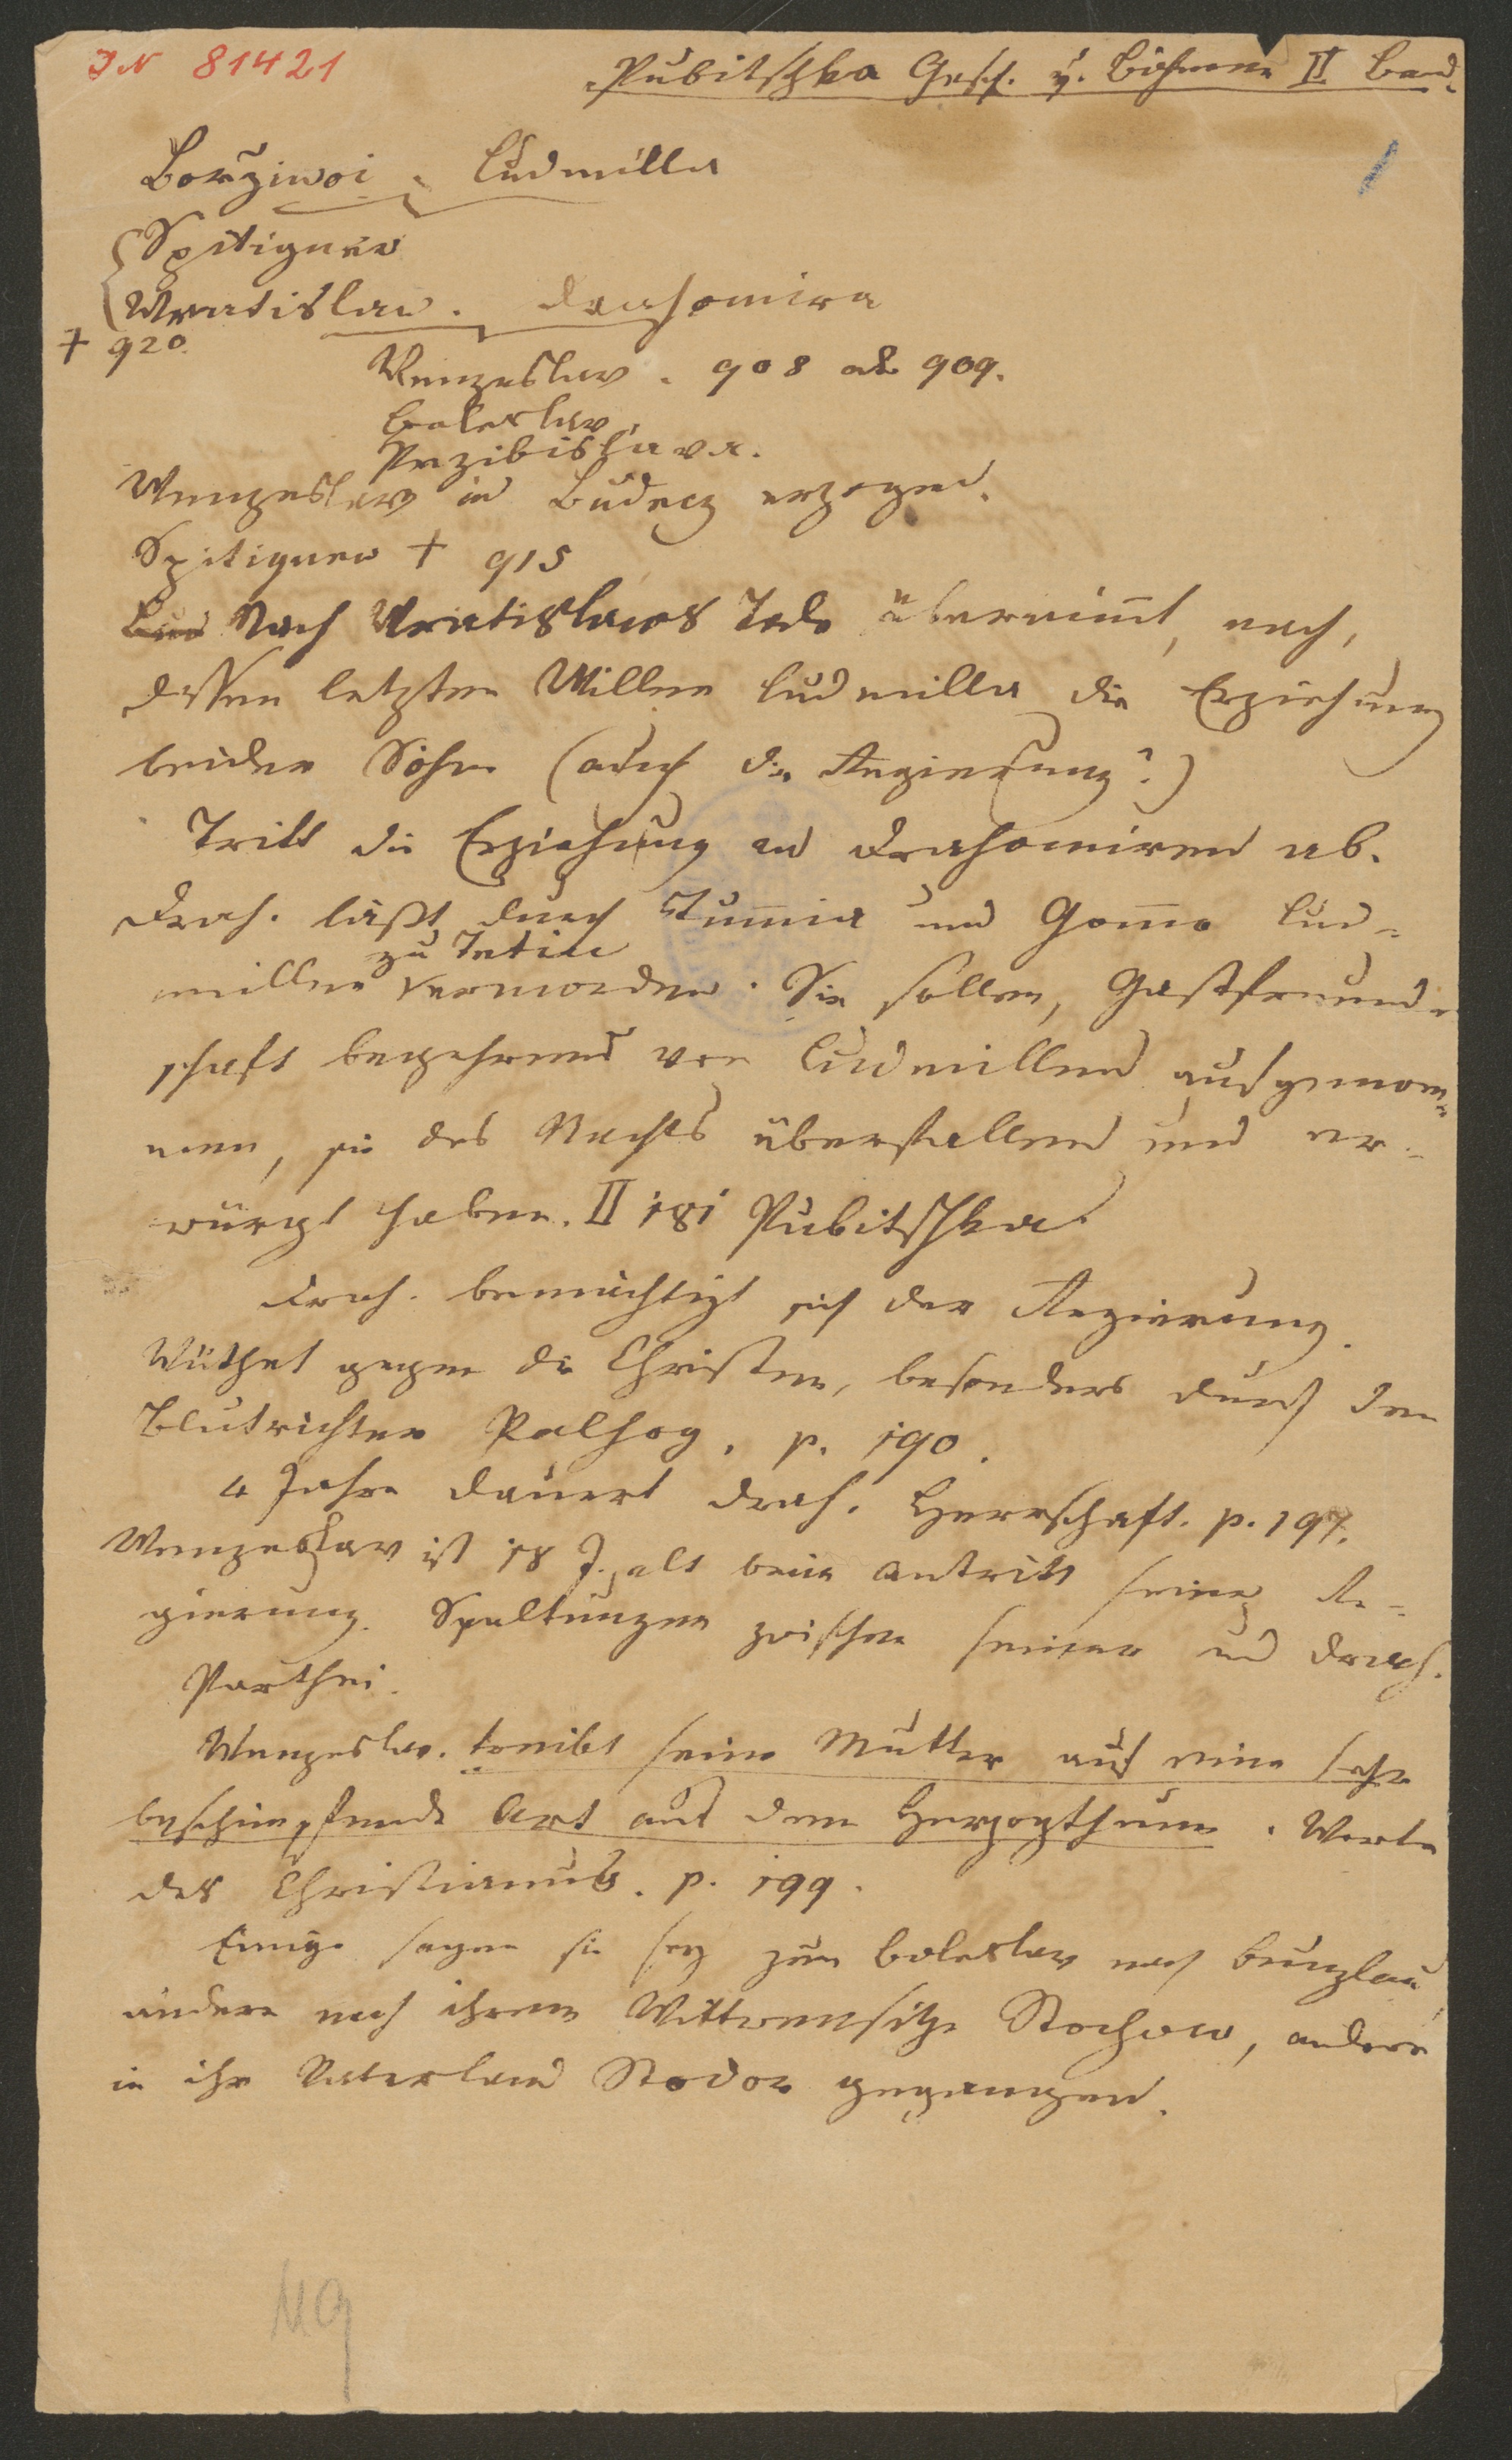 IN 81421
Pubitschka Gesch. v. Böhmen II Band.
1
Borziwoi . Ludmilla
Spitignew
Wratislaw . Drahomira
† 920.
Wenzeslav . 908 od 909.
Boleslav.
Przibislava.
Wenzeslav in Budecz erzogen.
Spitignew † 915
Nach Wratislavs Tode übernimt, nach,
dessen letzten Willen Ludmilla die Erziehung
beider Söhne (auch die Regierung?)
Tritt die Erziehung an Drahomiren ab.
Drah. läßt durch Tumia und Gomo Lud-
zu Tetin
millen ermorden. Sie sollen, Gastfreund-
schaft begehrend von Ludmillen aufgenom-
men, sie des Nachts überfallen und er-
würgt haben. II 181 Pubitschka.
Drah. bemächtigt sich der Regierung.
Wüthet gegen die Christen, besonders durch den
Blutrichter Palhog. p. 190.
4 Jahre dauert Drah. Herrschaft. p. 197.
Wenzeslav ist 18 J. alt beim Antritt seiner Re-
gierung. Spaltungen zwischen seiner und Drah.
Parthei.
Wenzeslav. treibt seine Mutter auf eine sehr
beschimpfende Art aus dem Herzogthum. Worte
des Christianus. p. 199.
Einige sagen sie sey zum Boleslav nach Bunzlau
andere nach ihrem Wittwensitze Stochow, andere
in ihr Vaterland Stodor gegangen.